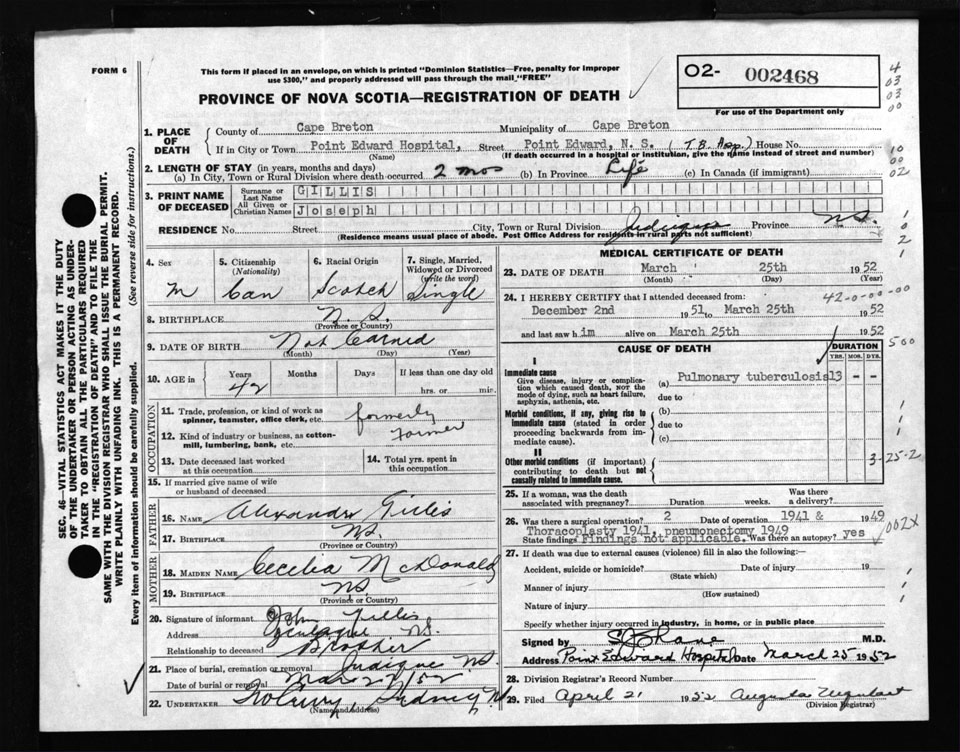 FORM 6
This form if placed in an envelope, on which is printed "Dominion Statistics—Free, penalty for improper
use $300," and properly addressed will pass through the mail "FREE"
PROVINCE OF NOVA SCOTIA—REGISTRATION OF DEATH
O2- 002468
For use of the Department only
4
03
03
00
1. PLACE OF DEATH
County of Cape Breton Municipality of Cape Breton
If in City or Town Point Edward Hospital, Street Point Edward, N. S. (T.B. Hosp.) House No.
(Name) (If death occurred in a hospital or institution, give the name instead of street and number)
2. LENGTH OF STAY (in years, months and days)
(a) In City, Town or Rural Division where death occurred 2 mos (b) In Province Life (c) In Canada (if immigrant)
3. PRINT NAME OF DECEASED
Surname or Last Name GILLIS
All Given or Christian Names Joseph
RESIDENCE No. Street City, Town or Rural Division Judique Province N.S.
(Residence means usual place of abode. Post Office Address for residents in rural parts not sufficient)
4. Sex M
5. Citizenship (Nationality) Can
6. Racial Origin Scotch
7. Single, Married, Widowed or Divorced (write the word) Single
8. BIRTHPLACE N.S.
(Province or Country)
9. DATE OF BIRTH Not Carried
(Month) (Day) (Year)
10. AGE in Years 42 Months Days If less than one day old
hrs. or min.
OCCUPATION
11. Trade, profession, or kind of work as spinner, teamster, office clerk, etc. formerly
12. Kind of industry or business, as cotton-mill, lumbering, bank, etc. Farmer
13. Date deceased last worked at this occupation
14. Total yrs. spent in this occupation
15. If married give name of wife or husband of deceased
FATHER
16. NAME Alexander Gillis
17. BIRTHPLACE N.S.
(Province or Country)
MOTHER
18. MAIDEN NAME Cecelia McDonald
19. BIRTHPLACE N.S.
(Province or Country)
20. Signature of informant John Gillis
Address N.S.
Relationship to deceased Brother
21. Place of burial, cremation or removal Judique N.S.
Date of burial or removal Mar 27/52
22. UNDERTAKER Sydney N.S.
(Name and address)
MEDICAL CERTIFICATE OF DEATH
23. DATE OF DEATH March 25th 1952
(Month) (Day)
24. I HEREBY CERTIFY that I attended deceased from: 42-0-00-00
December 2nd 1951 to March 25th 1952
and last saw him alive on March 25th 1952
CAUSE OF DEATH DURATION
YRS. MOS. DYS.
500
I
Immediate cause
Give disease, injury or complication which caused death, NOT the mode of dying, such as heart failure, asphyxia, asthenia, etc.
(a) Pulmonary tuberculosis 13 - -
due to
Morbid conditions, if any, giving rise to immediate cause (stated in order proceeding backwards from immediate cause).
(b)
due to
(c)
II
Other morbid conditions (if important) contributing to death but not causally related to immediate cause.
3-25-2
25. If a woman, was the death associated with pregnancy? Duration weeks. Was there a delivery?
26. Was there a surgical operation? 2 Date of operation 1941 & 1949
Thoracoplasty 1941, pneumonectomy 1949
State findings Findings not applicable. Was there an autopsy? yes
002X
27. If death was due to external causes (violence) fill in also the following:—
Accident, suicide or homicide? Date of injury 19
(State which)
Manner of injury
(How sustained)
Nature of injury
Specify whether injury occurred in industry, in home, or in public place
Signed by M.D.
Address Point Edward Hospital Date March 25 1952
28. Division Registrar's Record Number
29. Filed April 21 1952 Augusta Urquhart
(Division Registrar)
SEC. 46—VITAL STATISTICS ACT MAKES IT THE DUTY
OF THE UNDERTAKER OR PERSON ACTING AS UNDERTAKER
TO OBTAIN ALL THE PARTICULARS REQUIRED
IN THE "REGISTRATION OF DEATH" AND TO FILE THE
SAME WITH THE DIVISION REGISTRAR WHO SHALL ISSUE THE BURIAL PERMIT.
WRITE PLAINLY WITH UNFADING INK. THIS IS A PERMANENT RECORD.
Every item of information should be carefully supplied. (See reverse side for instructions.)